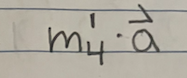 m₄' · a⃗